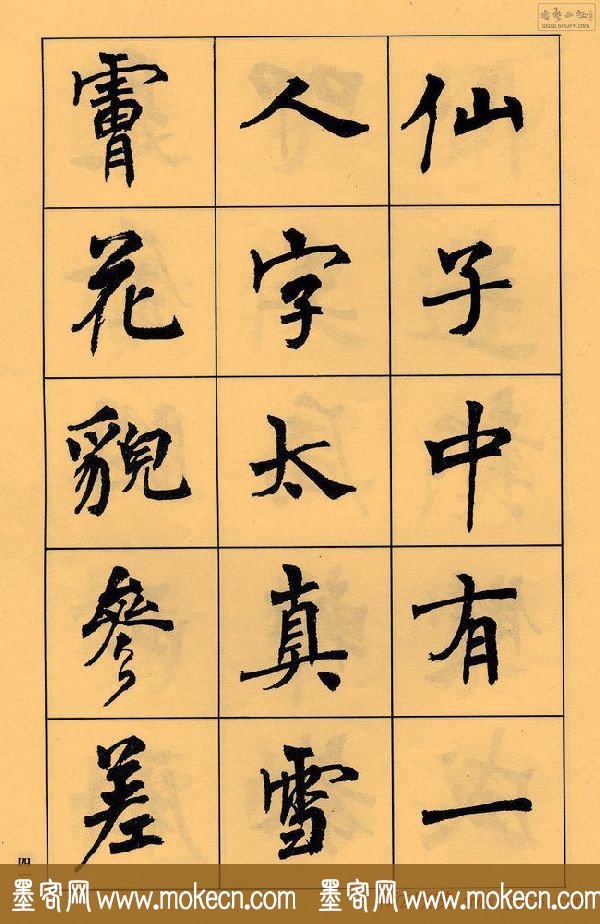 仙子中有一
人字太真雪
膚花貌參差
墨客网 www.mokecn.com 墨客网 www.mokecn.com